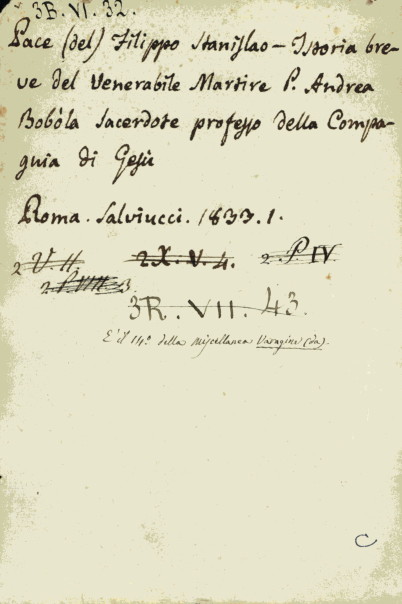 3B. VI. 32.
Pace (del) Filippo Stanislao - Istoria bre-
ve del Venerabile Martire P. Andrea
Bobòla Sacerdote professo della Compa-
gnia di Gesù
Roma. Salviucci. 1833. 1.
2 V. II 2 X. V. 4. 2. P IV
2 P. VIII 3.
3R. VII. 43.
È il 14º della Miscellanea Varagine (da).
C